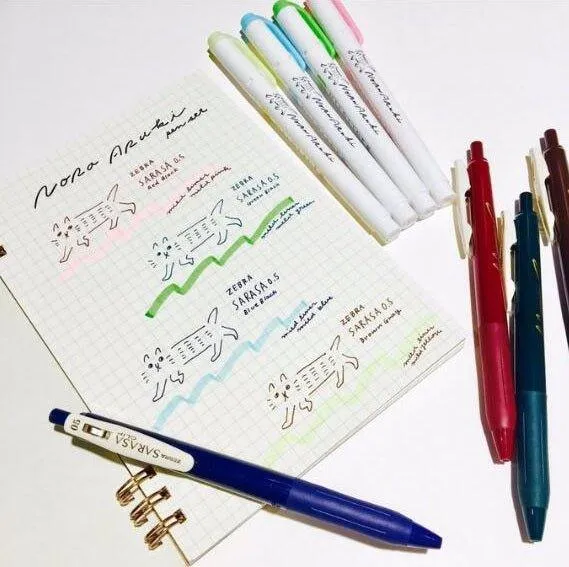 NORA ARUKI
pen set
ZEBRA
SARASA 0.5
Red Black
mild liner
mild pink
ZEBRA
SARASA 0.5
Green Black
mild liner
mild green
ZEBRA
SARASA 0.5
Blue Black
mild liner
mild blue
ZEBRA
SARASA 0.5
Brown Gray
mild liner
mild yellow
Nora Aruki
Nora Aruki
Nora Aruki
Nora Aruki
0.5
SARASA
CLIP
ZEBRA